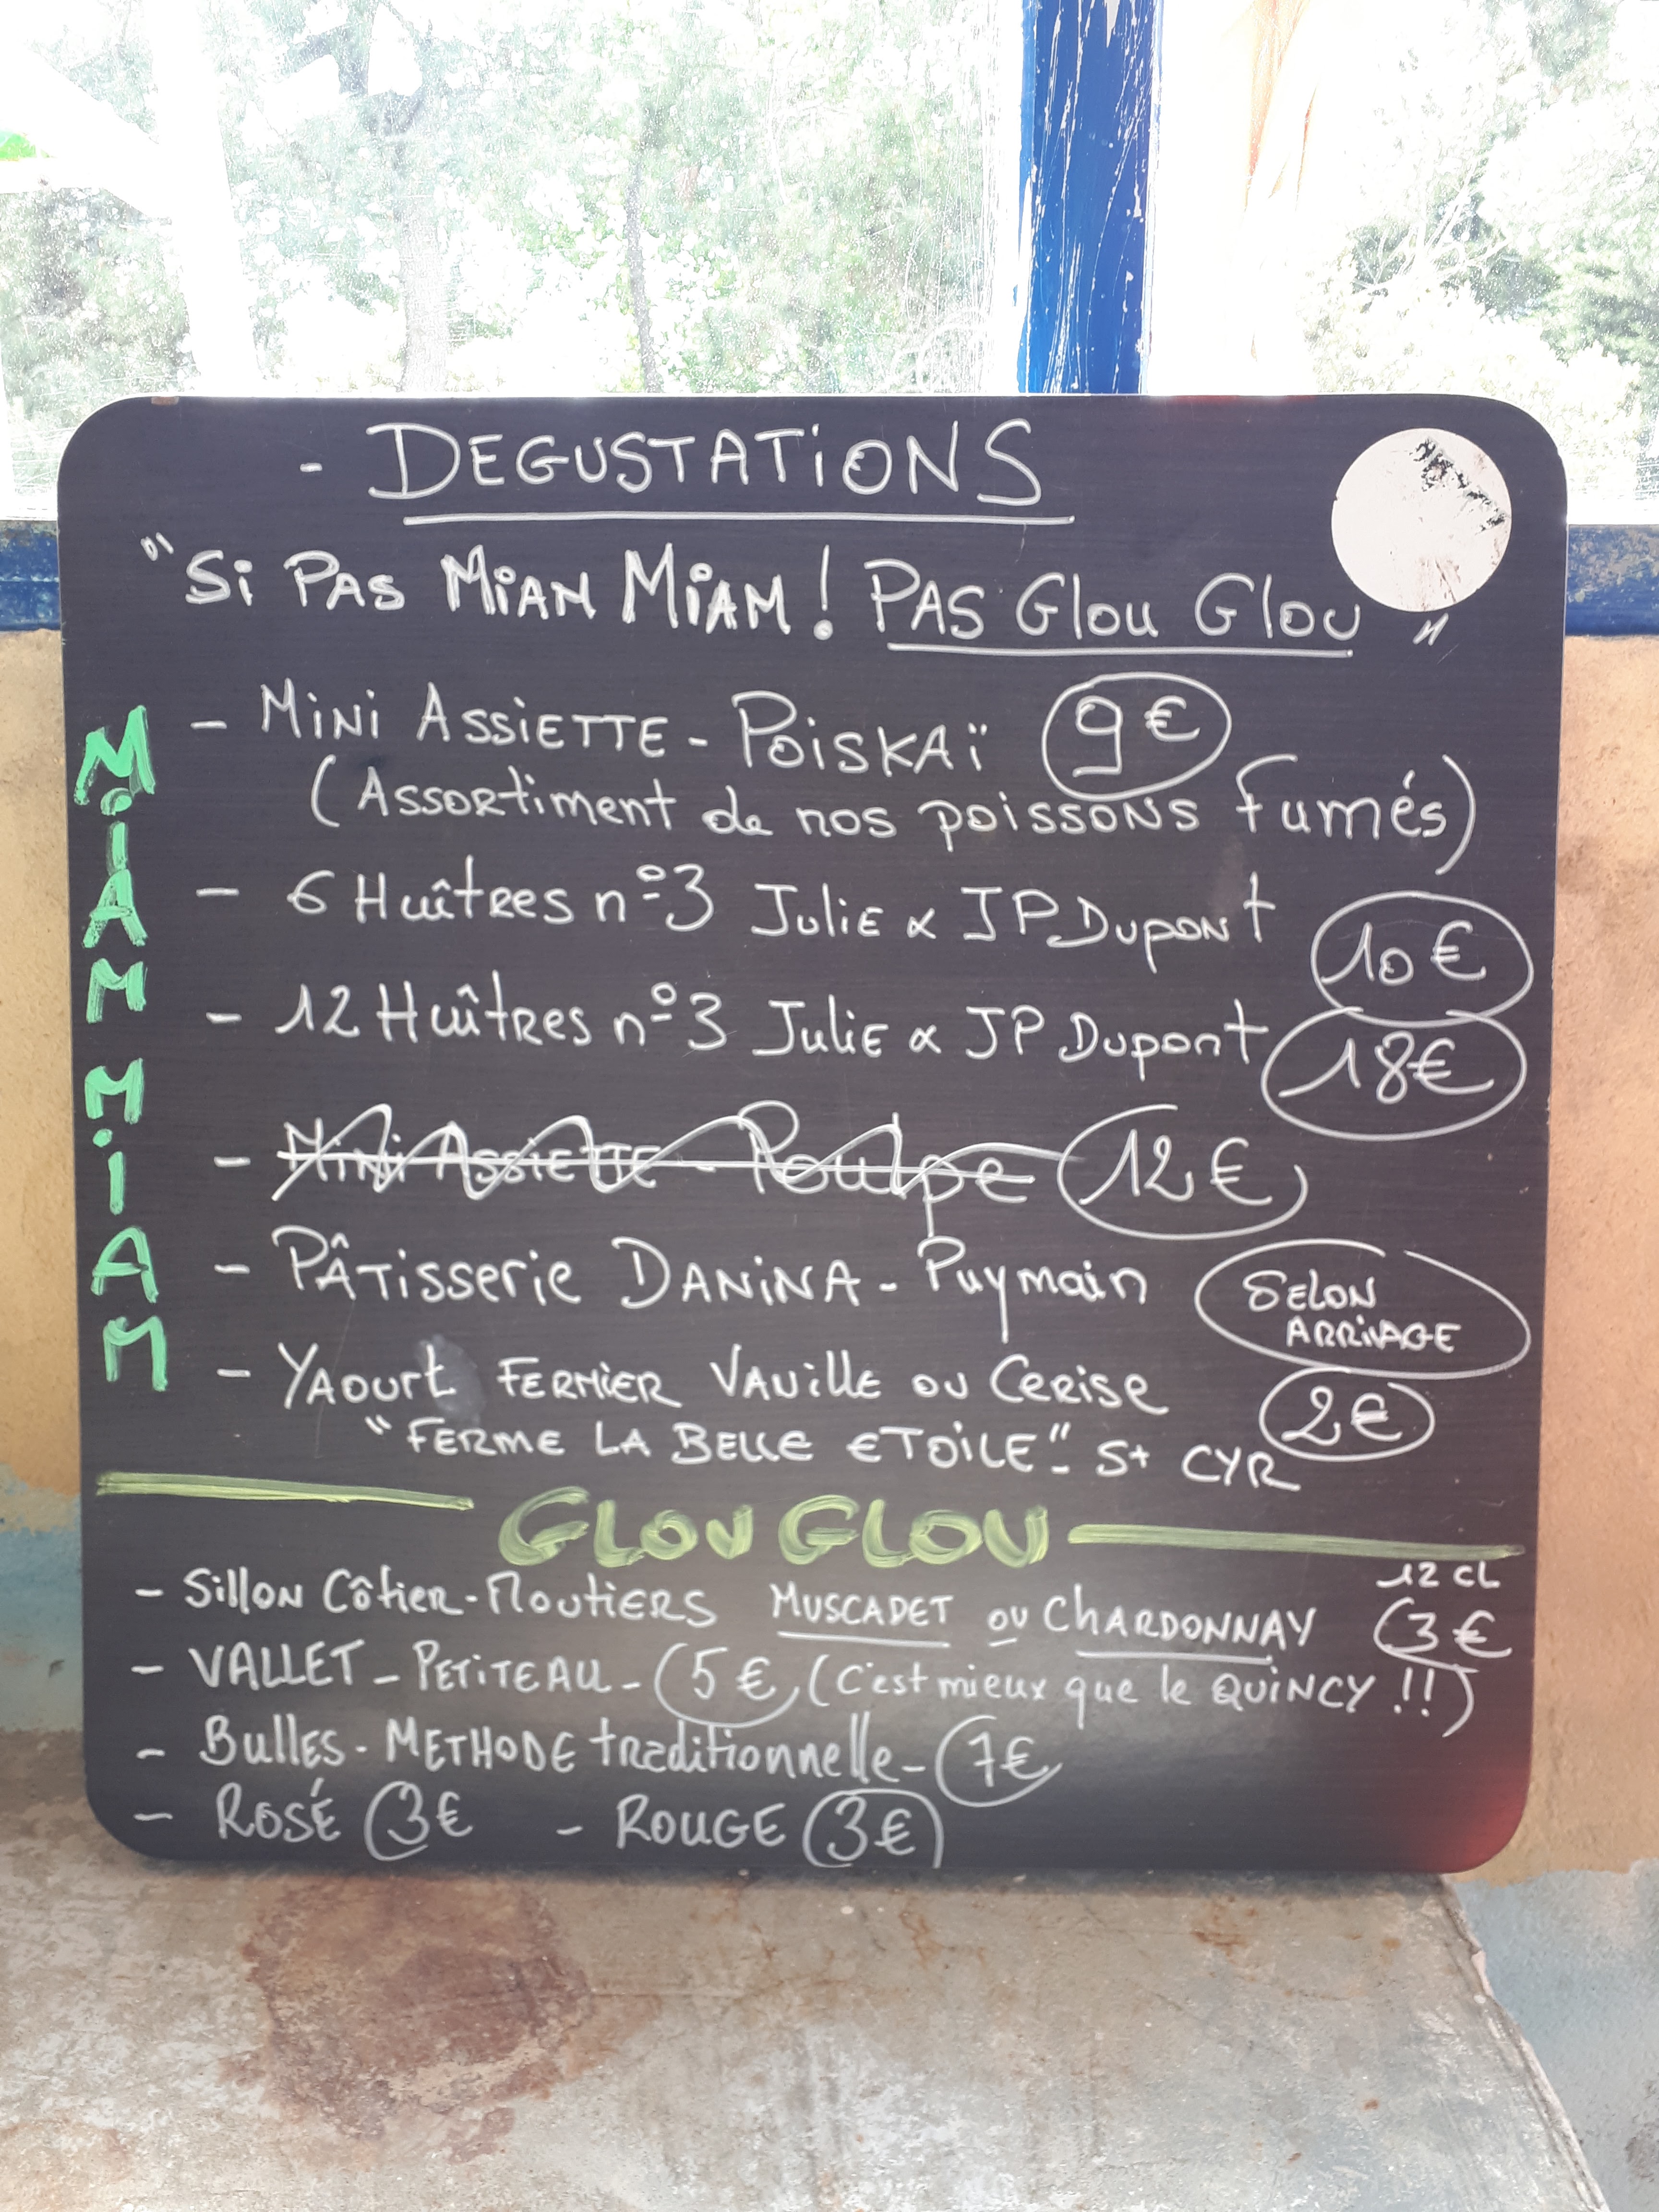 - DEGUSTATiONS
"Si PAS MiAN MiAM! PAS Glou Glou"
MiAM MiAM
- MiNi ASSiETTE - POiSKAï 9€
(Assortiment de nos poissons fumés)
- 6 Huîtres n°3 Julie & JP Dupont 10€
- 12 Huîtres n°3 Julie & JP Dupont 18€
- Mini Assiette - Poulpe 12€
- PÂTisserie DANiNA - Puymain SELON ARRiVAGE
- YAourt FERMIER VAuille ou Cerise 2€
"FERME LA BELLE ETOiLE" - St CYR
GLOU GLOU
12 CL
- Sillon Côtier - MoutiERS MUSCADET ou ChARDONNAY 3€
- VALLET - PETiTEAU - 5€ (C'est mieux que le QUiNCY !!)
- BullES - METHODE traditionnelle - 7€
- ROSÉ 3€ - ROUGE 3€